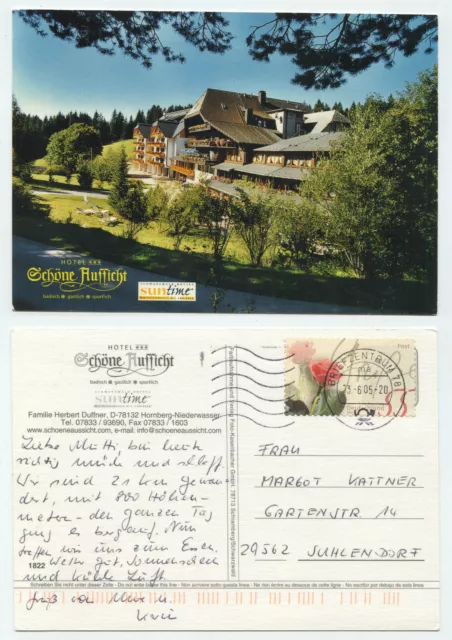 HOTEL ★★★
Schöne Aussicht
badisch ● gastlich ● sportlich
SCHWARZWALD HOTELS
suntime
HOTEL ★★★
Schöne Aussicht
badisch ● gastlich ● sportlich
SCHWARZWALD HOTELS
suntime
Familie Herbert Duffner, D-78132 Hornberg-Niederwasser
Tel. 07833 / 93690, Fax 07833 / 1603
www.schoeneaussicht.com, e-mail: info@schoeneaussicht.com
Liebe Mutti, bin heute
richtig müde und schlapp.
Wir sind 21 km gewan-
dert, mit 800 Höhen-
metern - den ganzen Tag
ging es bergauf. Nun
treffen wir uns zum Essen.
Wetter gut, Sonnenschein
und kühle Luft.
1822
Schreiben Sie nicht unter dieser Linie - Do not write below this line - Non scrivere sotto questa linea - Ne rien écrire au dessous de cette ligne - No escribir por debajo de esta línea
BRIEFZENTRUM 78
23.-6.05-20
Post
55
FRAU
MARGOT KATTNER
GARTENSTR 14
29562 SUHLENDORF